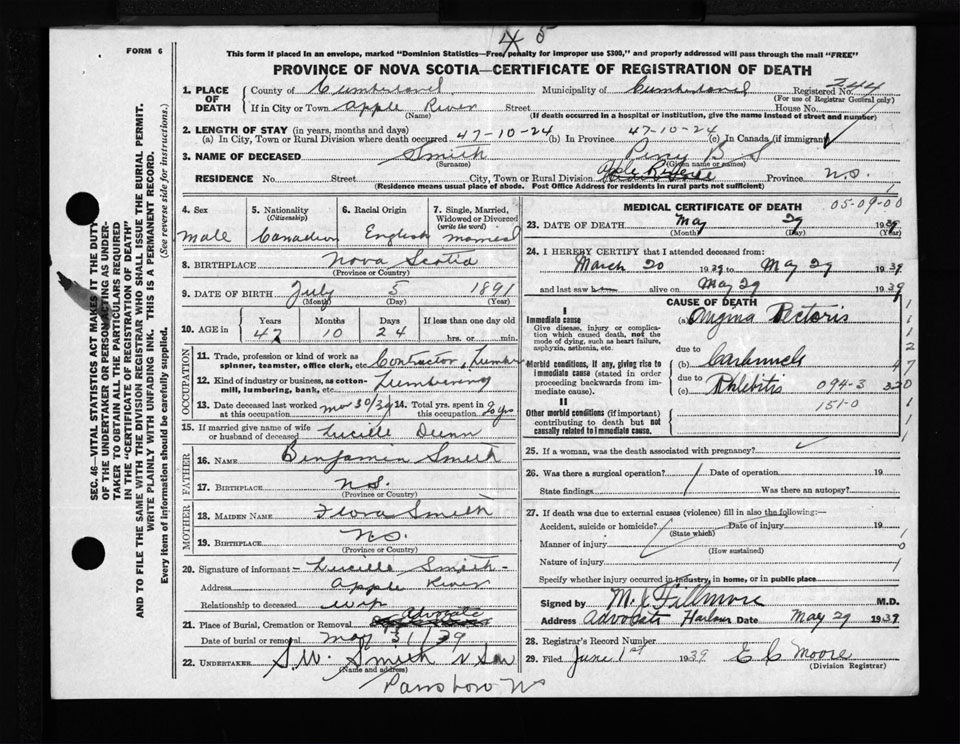 45
FORM 6
This form if placed in an envelope, marked "Dominion Statistics—Free, penalty for improper use $300," and properly addressed will pass through the mail "FREE"
PROVINCE OF NOVA SCOTIA—CERTIFICATE OF REGISTRATION OF DEATH
SEC. 46—VITAL STATISTICS ACT MAKES IT THE DUTY
OF THE UNDERTAKER OR PERSON ACTING AS UNDER-
TAKER TO OBTAIN ALL THE PARTICULARS REQUIRED
IN THE "CERTIFICATE OF REGISTRATION OF DEATH"
AND TO FILE THE SAME WITH THE DIVISION REGISTRAR WHO SHALL ISSUE THE BURIAL PERMIT.
WRITE PLAINLY WITH UNFADING INK. THIS IS A PERMANENT RECORD.
Every item of information should be carefully supplied. (See reverse side for instructions.)
1. PLACE OF DEATH County of Cumberland Municipality of Cumberland Registered No. 344
(For use of Registrar General only)
If in City or Town Apple River Street House No.
(Name) (If death occurred in a hospital or institution, give the name instead of street and number)
2. LENGTH OF STAY (in years, months and days)
(a) In City, Town or Rural Division where death occurred 47-10-24 (b) In Province 47-10-24 (c) In Canada (if immigrant)
3. NAME OF DECEASED Smith Percy B S
(Surname) (Given name or names)
RESIDENCE No. Street City, Town or Rural Division Apple River Province N.S.
(Residence means usual place of abode. Post Office Address for residents in rural parts not sufficient)
4. Sex 5. Nationality (Citizenship) 6. Racial Origin 7. Single, Married, Widowed or Divorced (write the word)
Male Canadian English Married
8. BIRTHPLACE Nova Scotia
(Province or Country)
9. DATE OF BIRTH July 5 1891
(Month) (Day) (Year)
10. AGE in Years Months Days If less than one day old
47 10 24 hrs. or min.
OCCUPATION
11. Trade, profession or kind of work as spinner, teamster, office clerk, etc. Contractor, Lumber
12. Kind of industry or business, as cotton-mill, lumbering, bank, etc. Lumbering
13. Date deceased last worked at this occupation Mar 30/39 14. Total yrs. spent in this occupation 20 yrs
15. If married give name of wife or husband of deceased Lucille Dunn
FATHER
16. NAME Benjamin Smith
17. BIRTHPLACE N.S.
(Province or Country)
MOTHER
18. MAIDEN NAME Flora Smith
19. BIRTHPLACE N.S.
(Province or Country)
20. Signature of informant Lucille Smith
Address Apple River
Relationship to deceased wife
21. Place of Burial, Cremation or Removal Advocate
Date of burial or removal May 31/39
22. UNDERTAKER S.W. Smith & Son
(Name and address)
Parrsboro NS
MEDICAL CERTIFICATE OF DEATH 05-09-00
23. DATE OF DEATH May 29 1939
(Month) (Day) (Year)
24. I HEREBY CERTIFY that I attended deceased from:
March 20 1939 to May 29 1939
and last saw him alive on May 29 1939
CAUSE OF DEATH
I
Immediate cause (a) Angina Pectoris
Give disease, injury or complication which caused death, not the mode of dying, such as heart failure, asphyxia, asthenia, etc.
due to
(b) Carbuncle
Morbid conditions, if any, giving rise to immediate cause (stated in order proceeding backwards from immediate cause).
due to
(c) Phlebitis 094-3
151-0
II
Other morbid conditions (if important) contributing to death but not causally related to immediate cause.
25. If a woman, was the death associated with pregnancy?
26. Was there a surgical operation? Date of operation 19
State findings Was there an autopsy?
27. If death was due to external causes (violence) fill in also the following:—
Accident, suicide or homicide? Date of injury 19
(State which)
Manner of injury
(How sustained)
Nature of injury
Specify whether injury occurred in industry, in home, or in public place
Signed by M. J. Fillmore M.D.
Address Advocate Harbour Date May 29 1939
28. Registrar's Record Number
29. Filed June 1st 1939 E C Moore
(Division Registrar)